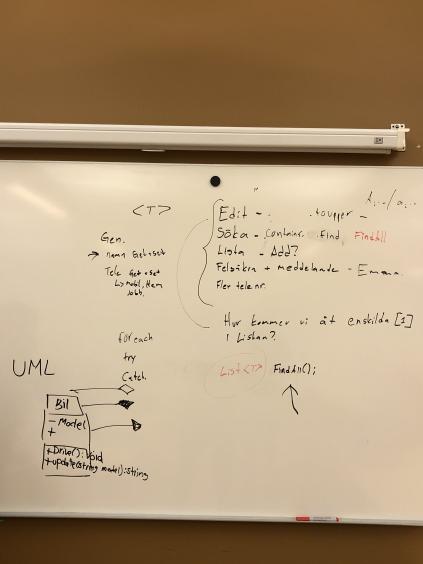 <T>
Gen.
→ namn Get+set
Tele Get+set
L> mobil, Hem
Jobb.
Edit - .toupper -
Söka - .contains. find FindAll
Lista - Add?
Felsäkra + meddelande - Emman.
Fler tele nr.
Hur kommer vi åt enskilda [1]
i Listan?
List<T> FindAll();
for each
try
Catch
UML
Bil
- Model
+
+Drive(): Void
+update(string model):string